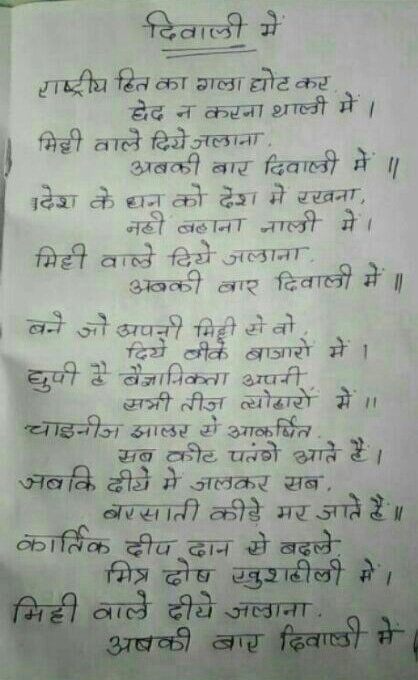 दिवाली में
राष्ट्रीय हित का गला घोट कर,
छेद न करना थाली में ।
मिट्टी वाले दिये जलाना,
अबकी बार दिवाली में ॥
देश के धन को देश मे रखना,
नहीं बहाना नाली में ।
मिट्टी वाले दिये जलाना,
अबकी बार दिवाली में ॥
बने जो अपनी मिट्टी से वो,
दिये बीके बाजारों में ।
छुपी है वैज्ञानिकता अपनी
सभी तीज त्योहारों में ॥
चाइनीज झालर से आकर्षित,
सब कीट पतंगे आते है ।
जबकि दीये मे जलकर सब,
बरसाती कीड़े मर जाते है ॥
कार्तिक दीप दान से बदले,
मित्र दोष खुशहीली में ।
मिट्टी वाले दीये जलाना,
अबकी बार दिवाली में